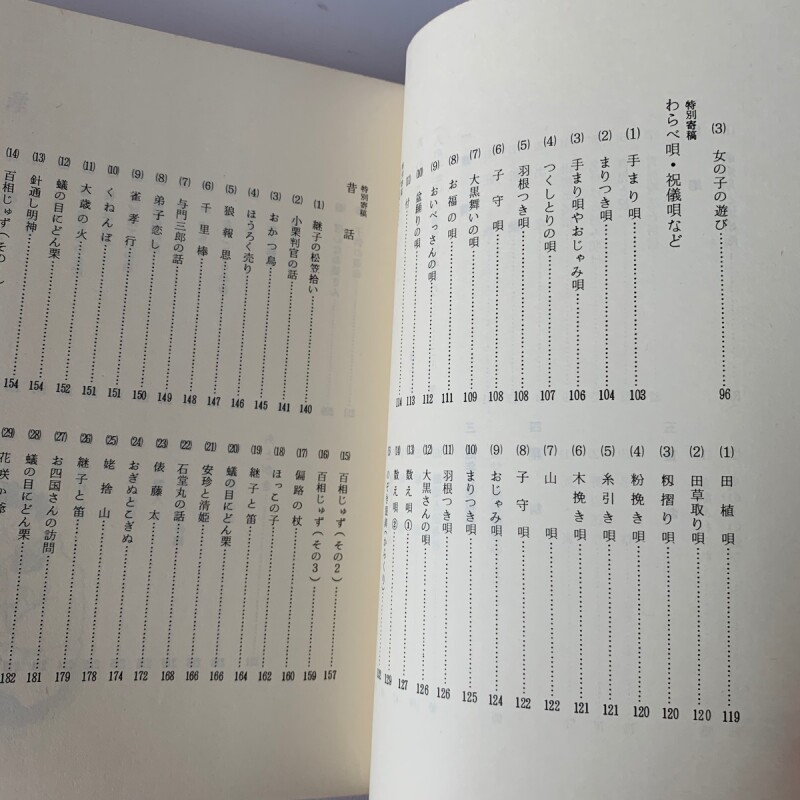 (3) 女の子の遊び 96
特別寄稿
わらべ唄・祝儀唄など
(1) 手まり唄 103
(2) まりつき唄 104
(3) 手まり唄やおじゃみ唄 106
(4) つくしとりの唄 107
(5) 羽根つき唄 108
(6) 子守唄 108
(7) 大黒舞いの唄 109
(8) お福の唄 111
(9) おいべっさんの唄 112
(10) 盆踊りの唄 113
114
(1) 田植唄 119
(2) 田草取り唄 120
(3) 籾摺り唄 120
(4) 粉挽き唄 120
(5) 糸引き唄 121
(6) 木挽き唄 121
(7) 山唄 122
(8) 子守唄 122
(9) おじゃみ唄 124
(10) まりつき唄 125
(11) 羽根つき唄 126
(12) 大黒さんの唄 126
(13) 数え唄① 127
(14) 数え唄② 129
特別寄稿
昔話
(1) 継子の松笠拾い 140
(2) 小栗判官の話 141
(3) おかつ鳥 145
(4) ほうろく売り 146
(5) 狼報恩 147
(6) 千里棒 148
(7) 与門三郎の話 148
(8) 弟子恋し 149
(9) 雀孝行 150
(10) くねんぼ 151
(11) 大歳の火 151
(12) 蟻の目にどん栗 152
(13) 針通し明神 154
(14) 百相じゅず(その 154
(15) 百相じゅず(その2) 157
(16) 百相じゅず(その3) 159
(17) 偏路の杖 160
(18) ほっこの子 162
(19) 継子と笛 164
(20) 蟻の目にどん栗 166
(21) 安珍と清姫 166
(22) 石堂丸の話 168
(23) 俵藤太 172
(24) おぎぬとこぎぬ 174
(25) 姥捨山 174
(26) 継子と笛 178
(27) お四国さんの訪問 179
(28) 蟻の目にどん栗 181
(29) 花咲か爺 182